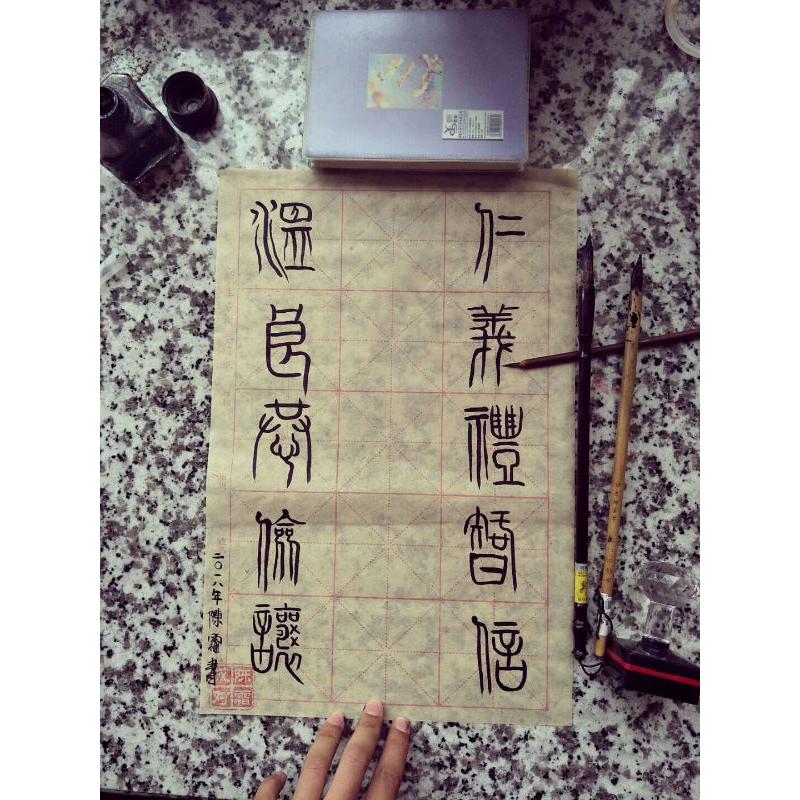 仁義禮智信
溫良恭儉讓
二〇一八年陳霜書
陈霜